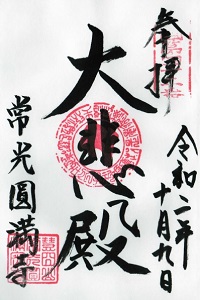 奉拝
令和二年十月九日
大悲殿
常光圓満寺